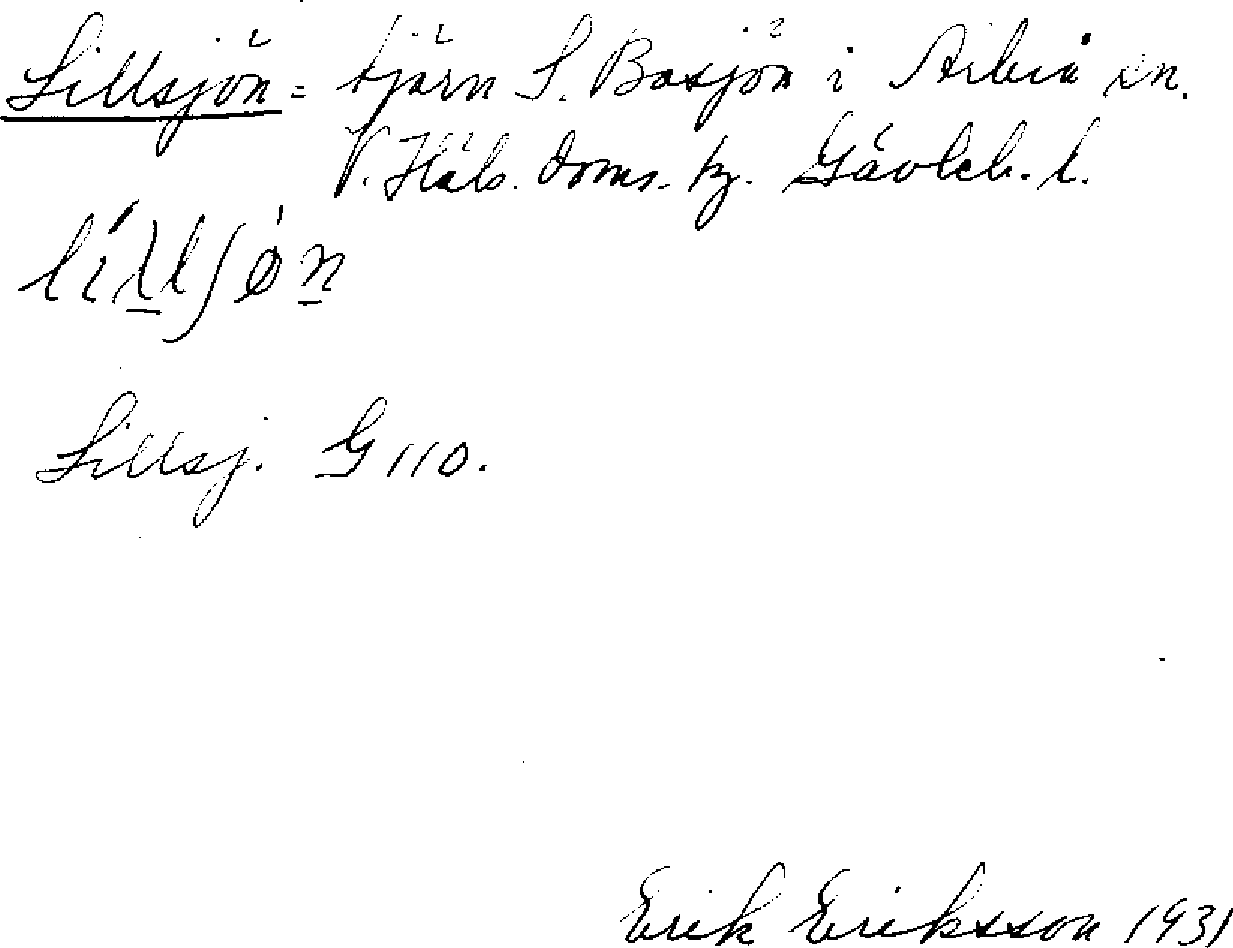 Lillsjön = tjärn S. Bosjön i Arbrå sn.
V. Häls. doms. hg. Gävleb. l.
lillsjøn
Lillsj. G 110.
Erik Eriksson 1931